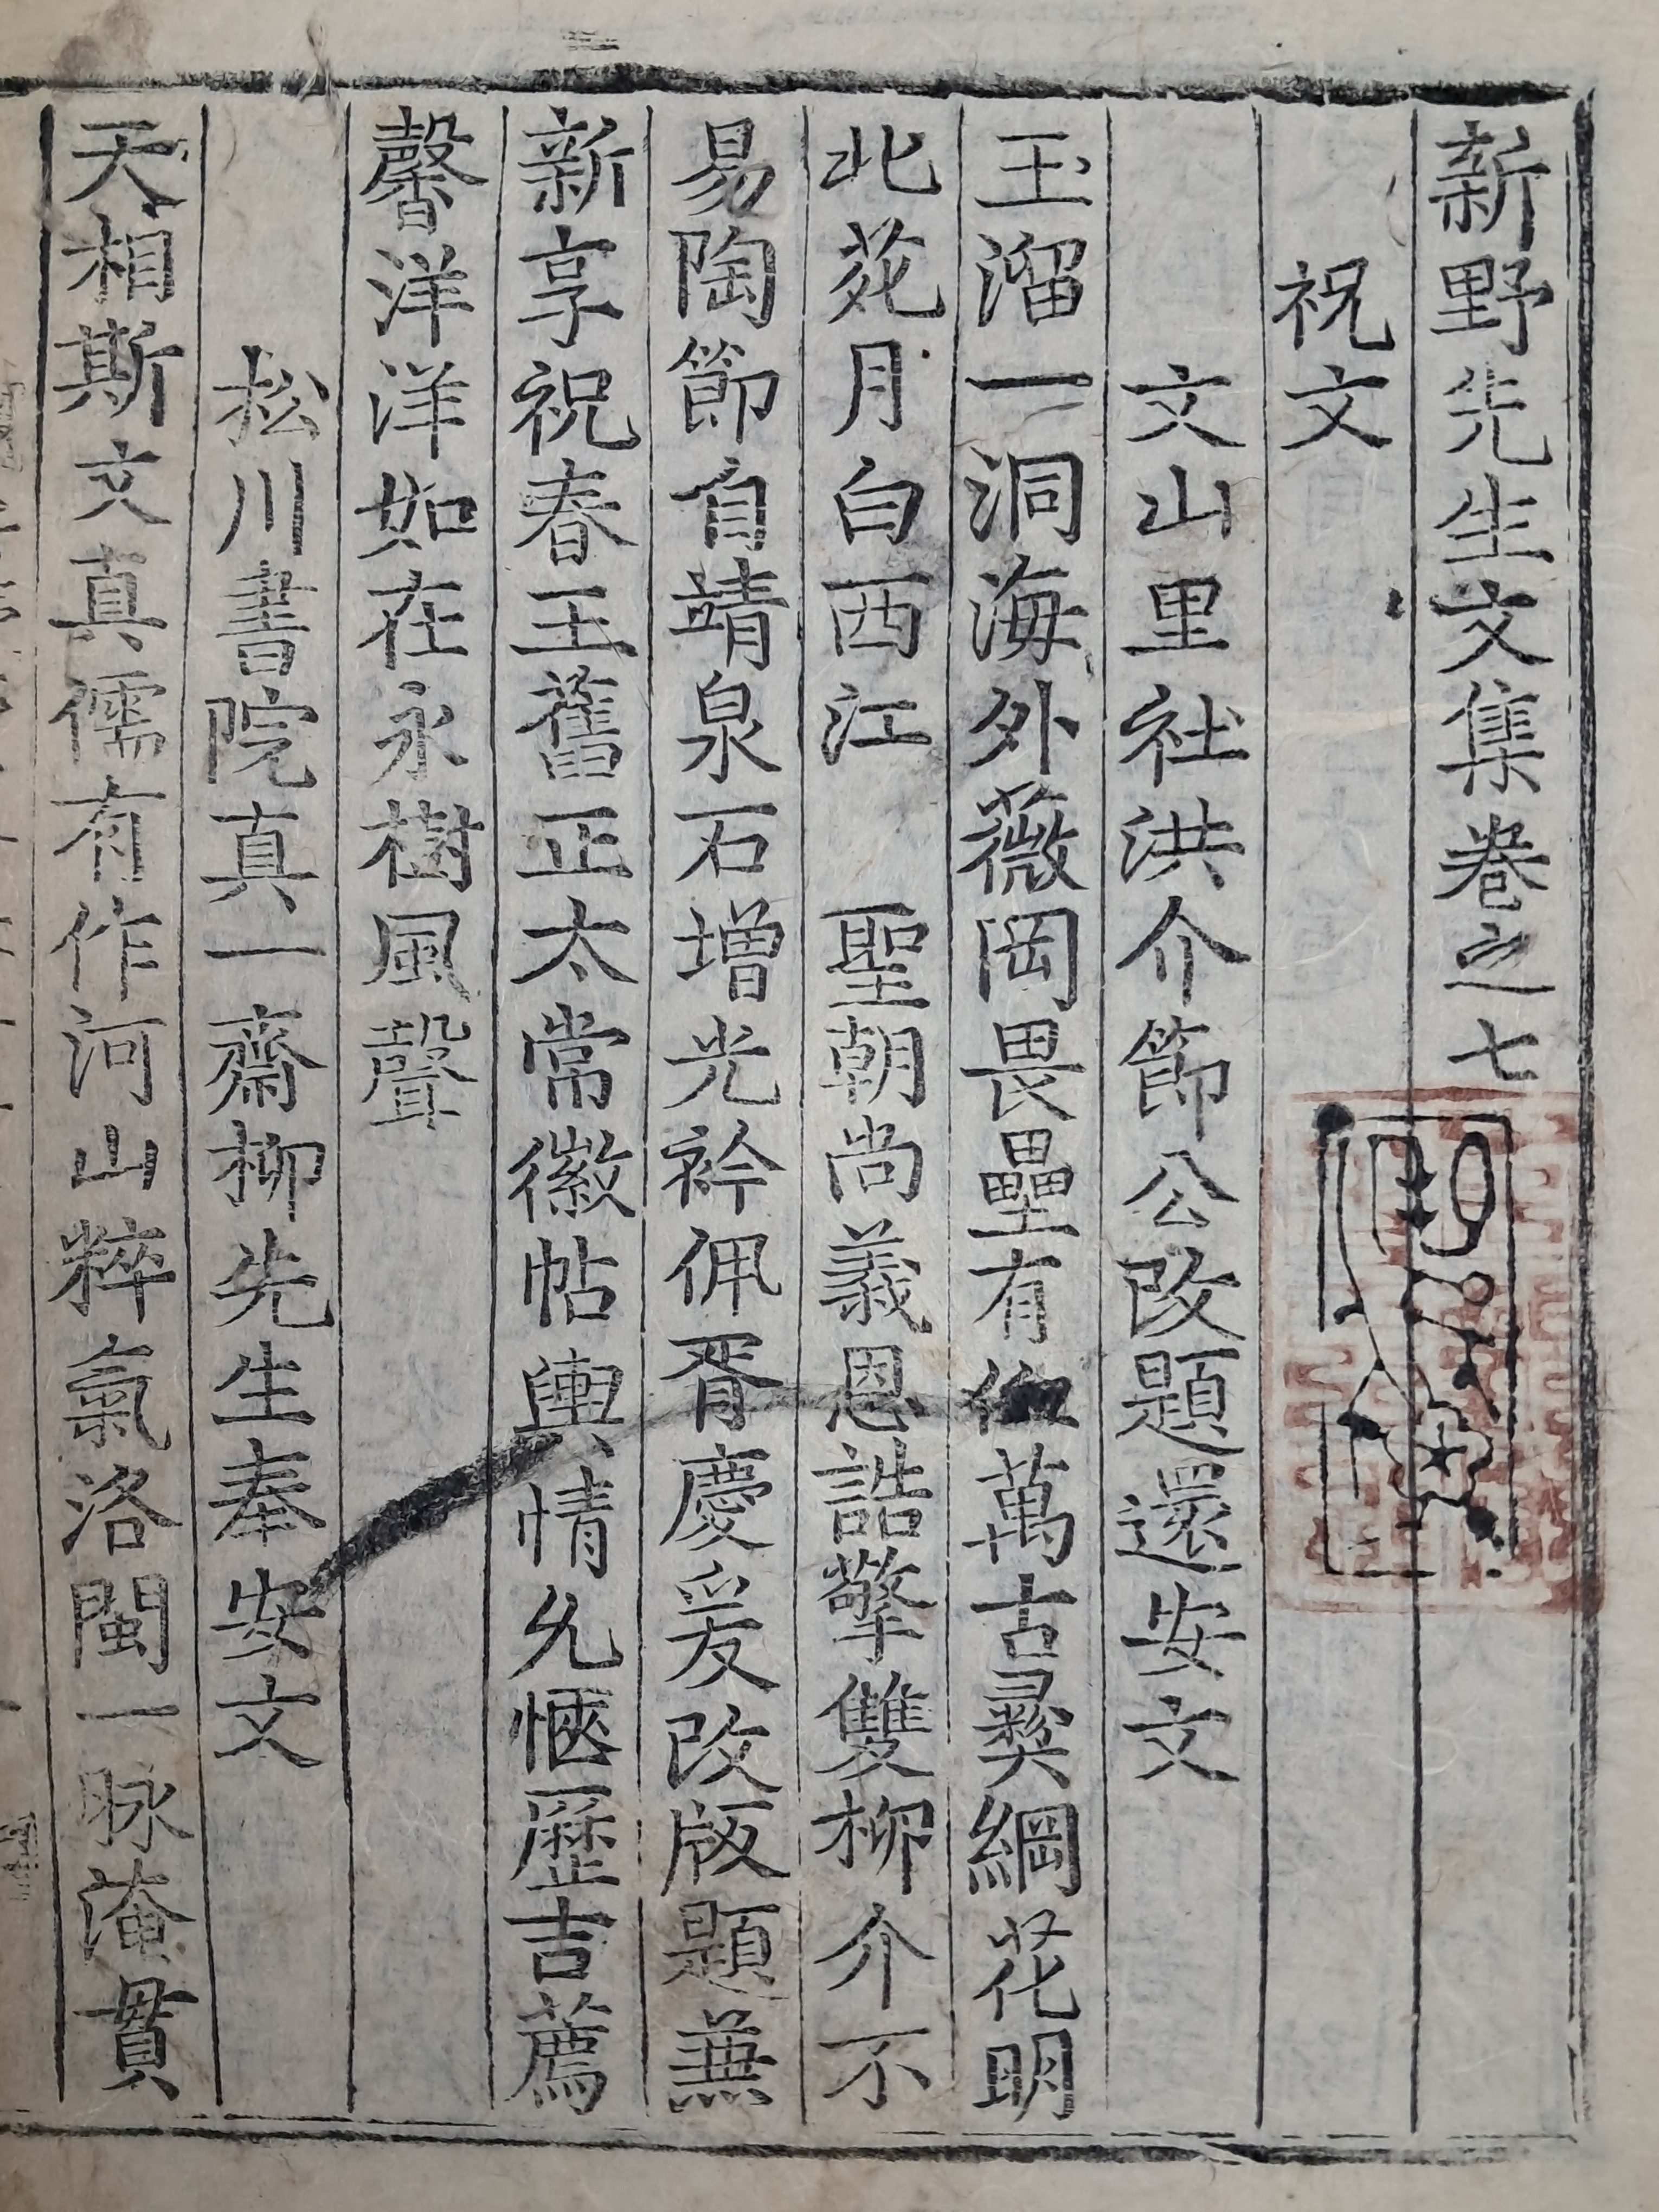 新野先生文集卷之七
祝文
文山里社洪介節公改題還安文
玉溜一洞海外薇岡畏壘有仙萬古彛綱花明
北苑月白西江 聖朝尚義恩誥擎雙柳介不
易陶節自靖泉石增光衿佩胥慶爰改版題兼
新享祝春王舊正太常徽帖輿情允愜歷吉薦
馨洋洋如在永樹風聲
松川書院真一齋柳先生奉安文
天相斯文真儒有作河山粹氣洛閩一脉淹貫